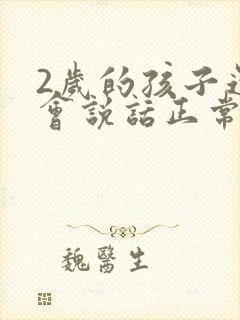 2歲的孩子
會說話正常
魏醫生